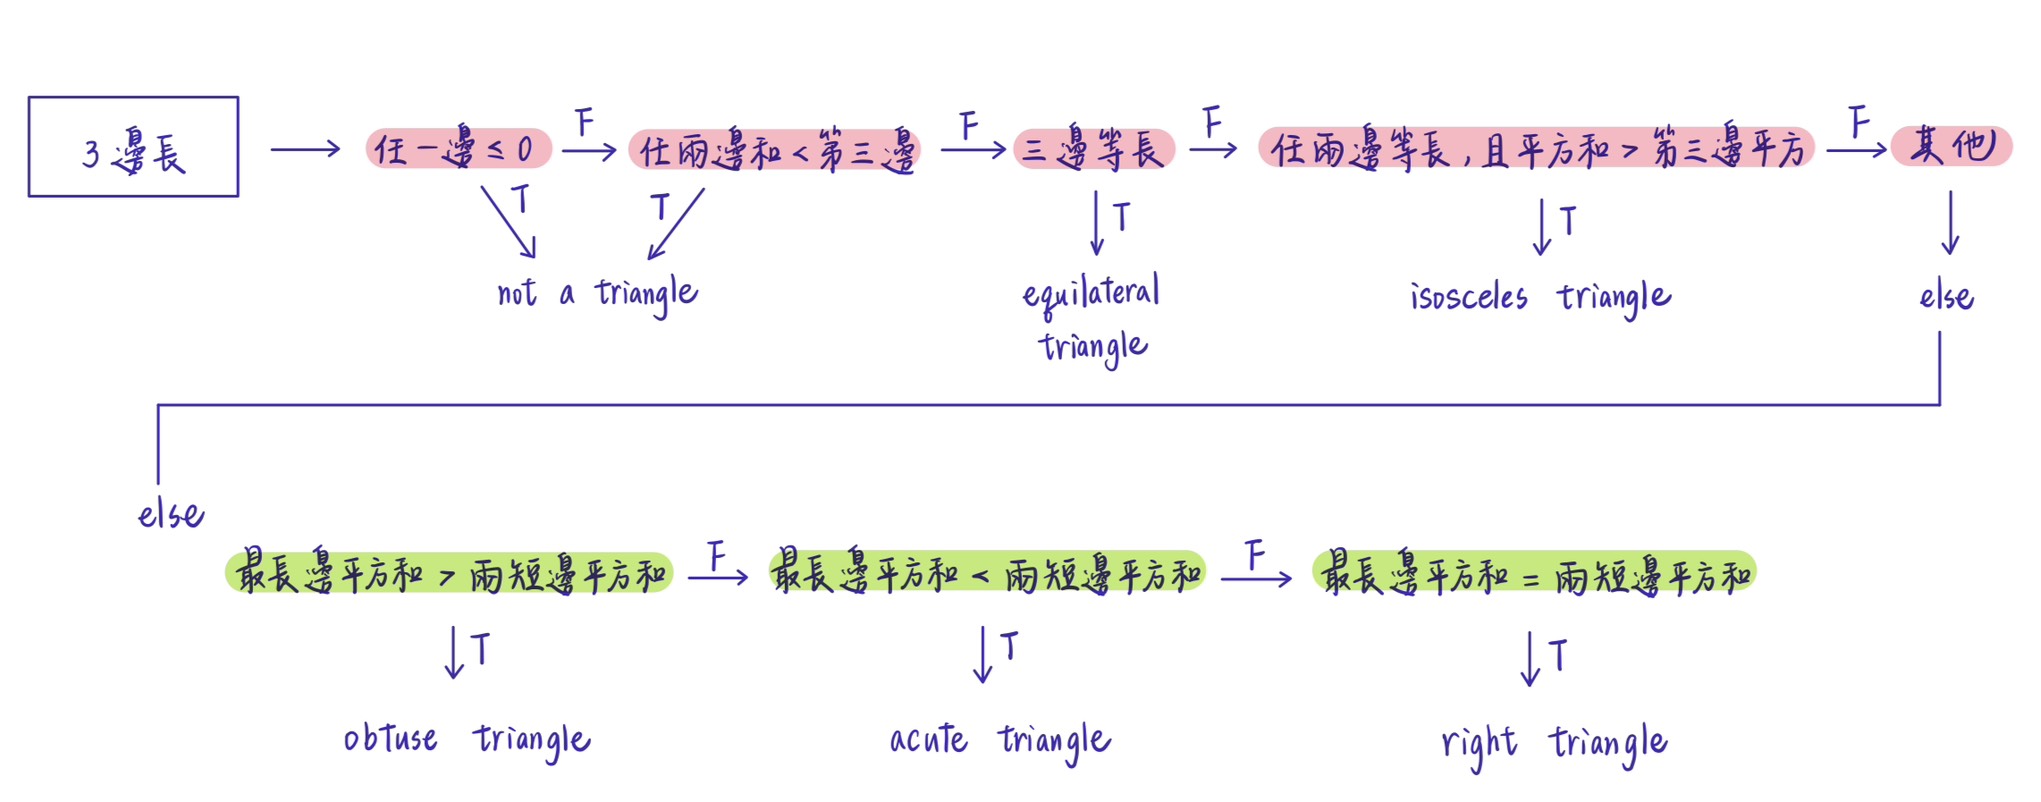 3 邊長
任一邊 ≤ 0
F
任兩邊和 < 第三邊
F
三邊等長
F
任兩邊等長,且平方和 > 第三邊平方
F
其他
T
T
T
T
not a triangle
equilateral
triangle
isosceles triangle
else
else
最長邊平方和 > 兩短邊平方和
F
最長邊平方和 < 兩短邊平方和
F
最長邊平方和 = 兩短邊平方和
T
T
T
obtuse triangle
acute triangle
right triangle